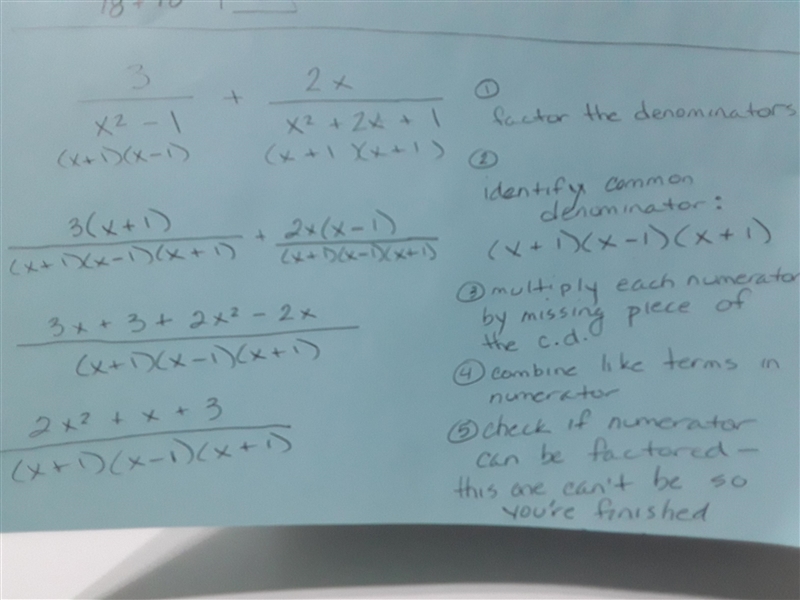 3 / x² - 1 + 2x / x² + 2x + 1
(x+1)(x-1) (x + 1)(x+1)
3(x+1) / (x+1)(x-1)(x+1) + 2x(x-1) / (x+1)(x-1)(x+1)
3x + 3 + 2x² - 2x / (x+1)(x-1)(x+1)
2x² + x + 3 / (x+1)(x-1)(x+1)
①
factor the denominators
②
identify common
denominator:
(x+1)(x-1)(x+1)
③ multiply each numerator
by missing piece of
the c.d.
④ combine like terms in
numerator
⑤ check if numerator
can be factored—
this one can't be so
you're finished